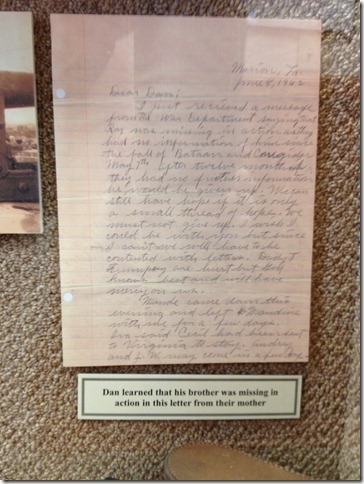 Marion, La
June 8, 1942
Dear Dan:
I just received a message
from the War Department saying that
Ray was missing in action as they
had no information of him since
the fall of Bataan and Coregidor
May 7th. After twelve months if
they had no further information
he would be given up. We can
still have hope if it is only
a small thread of hope. We
must not give up. I wish I
could be with you but since
I can't we will have to be
contented with letters. Dady &
are hurt but God
knows best and will have
mercy on us.
Maude came down this
evening and left
with me for a few days.
said Cecil had been sent
to Virginia
and may come in a few
Dan learned that his brother was missing in
action in this letter from their mother